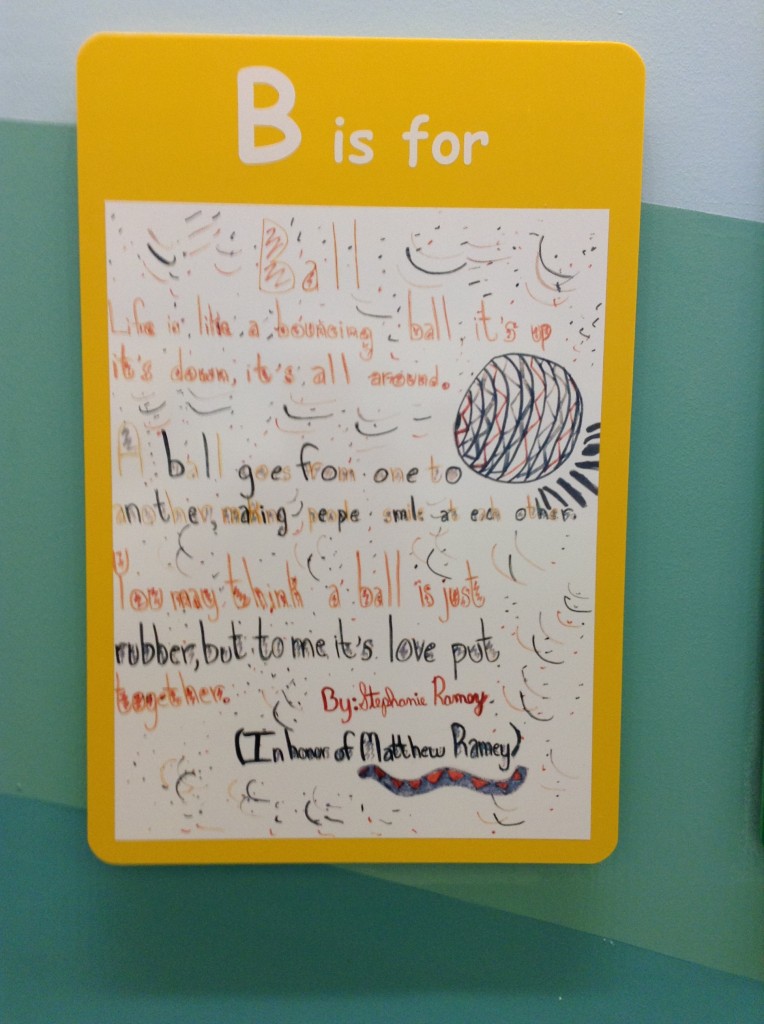 B is for
Ball
Life is like a bouncing ball, it's up
it's down, it's all around.
A ball goes from one to
another, making people smile at each other.
You may think a ball is just
rubber, but to me it's love put
together.
By: Stephanie Ramey.
(In honor of Matthew Ramey)